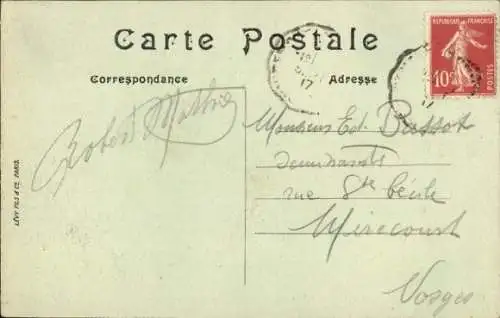 Carte Postale
Correspondance
Adresse
REPUBLIQUE FRANÇAISE
10c
POSTES
17
17
Robert Mathieu
Monsieur Ed. Bussot
rue Ste Cécile
Mirecourt
Vosges
LÉVY FILS & CIE, PARIS